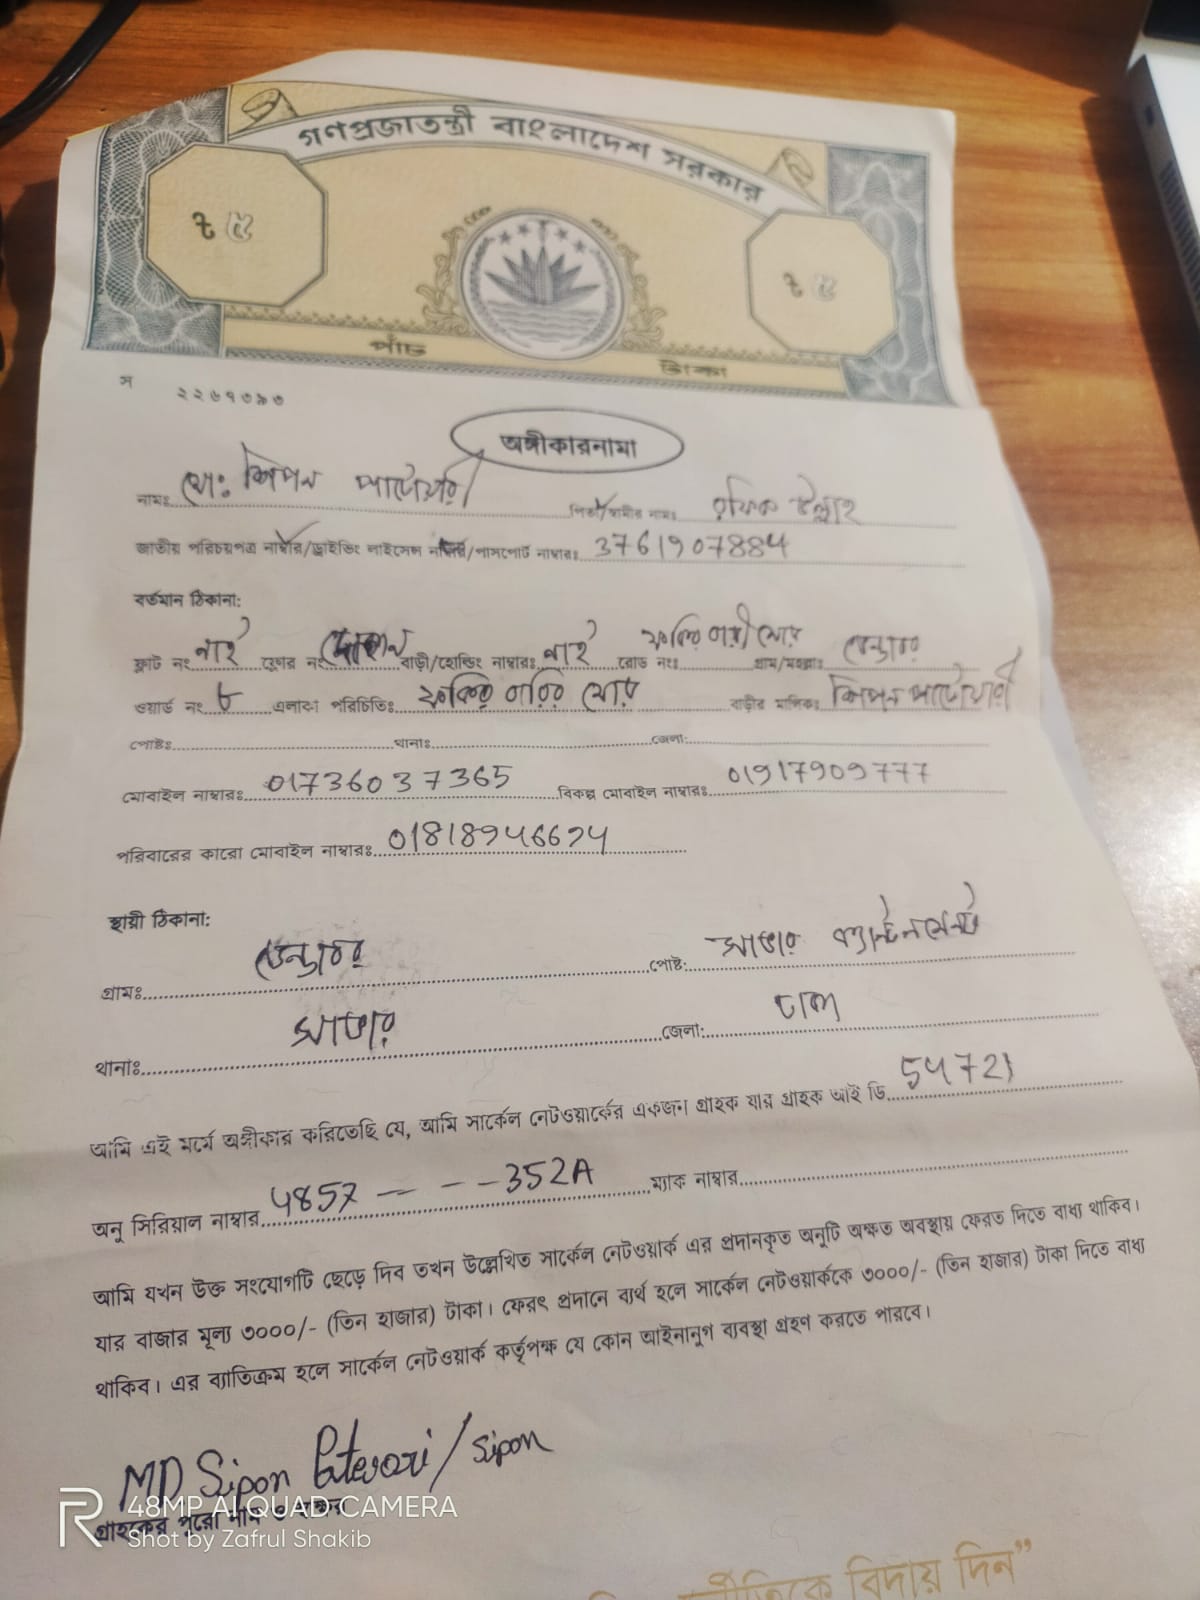 গণপ্রজাতন্ত্রী বাংলাদেশ সরকার
৳ ৫ ৳ ৫
পাঁচ টাকা
স ২২৬৭৩৯৩
অঙ্গীকারনামা
নামঃ মোঃ শিপন পাটোয়ারী পিতা/স্বামীর নামঃ রফিক উল্লাহ
জাতীয় পরিচয়পত্র নাম্বার/ড্রাইভিং লাইসেন্স নাম্বার/পাসপোর্ট নাম্বারঃ 3761907884
বর্তমান ঠিকানা:
ফ্লাট নং নাই ফ্লোর নং দোকান বাড়ী/হোল্ডিং নাম্বারঃ নাই রোড নংঃ ফকির বাড়ী মোড় গ্রাম/মহল্লাঃ ডেন্ডাবর
ওয়ার্ড নং ৮ এলাকা পরিচিতিঃ ফকির বাড়ির মোড় বাড়ীর মালিকঃ শিপন পাটোয়ারী
পোষ্টঃ থানাঃ জেলা:
মোবাইল নাম্বারঃ 01736037365 বিকল্প মোবাইল নাম্বারঃ 01917909777
পরিবারের কারো মোবাইল নাম্বারঃ
স্থায়ী ঠিকানা:
গ্রামঃ ডেন্ডাবর পোষ্ট: সাভার ক্যান্টনমেন্ট
থানাঃ সাভার জেলা: ঢাকা
আমি এই মর্মে অঙ্গীকার করিতেছি যে, আমি সার্কেল নেটওয়ার্কের একজন গ্রাহক যার গ্রাহক আই ডি 54721
অনু সিরিয়াল নাম্বার 4857 - - - 352A ম্যাক নাম্বার
আমি যখন উক্ত সংযোগটি ছেড়ে দিব তখন উল্লেখিত সার্কেল নেটওয়ার্ক এর প্রদানকৃত অনুটি অক্ষত অবস্থায় ফেরত দিতে বাধ্য থাকিব।
যার বাজার মূল্য ৩০০০/- (তিন হাজার) টাকা। ফেরৎ প্রদানে ব্যর্থ হলে সার্কেল নেটওয়ার্ককে ৩০০০/- (তিন হাজার) টাকা দিতে বাধ্য
থাকিব। এর ব্যাতিক্রম হলে সার্কেল নেটওয়ার্ক কর্তৃপক্ষ যে কোন আইনানুগ ব্যবস্থা গ্রহণ করতে পারবে।
MD Sipon Patevari/Sipon
গ্রাহকের পুরো নাম ও স্বাক্ষর
48MP AI QUAD CAMERA
Shot by Zafrul Shakib
বিদায় দিন”